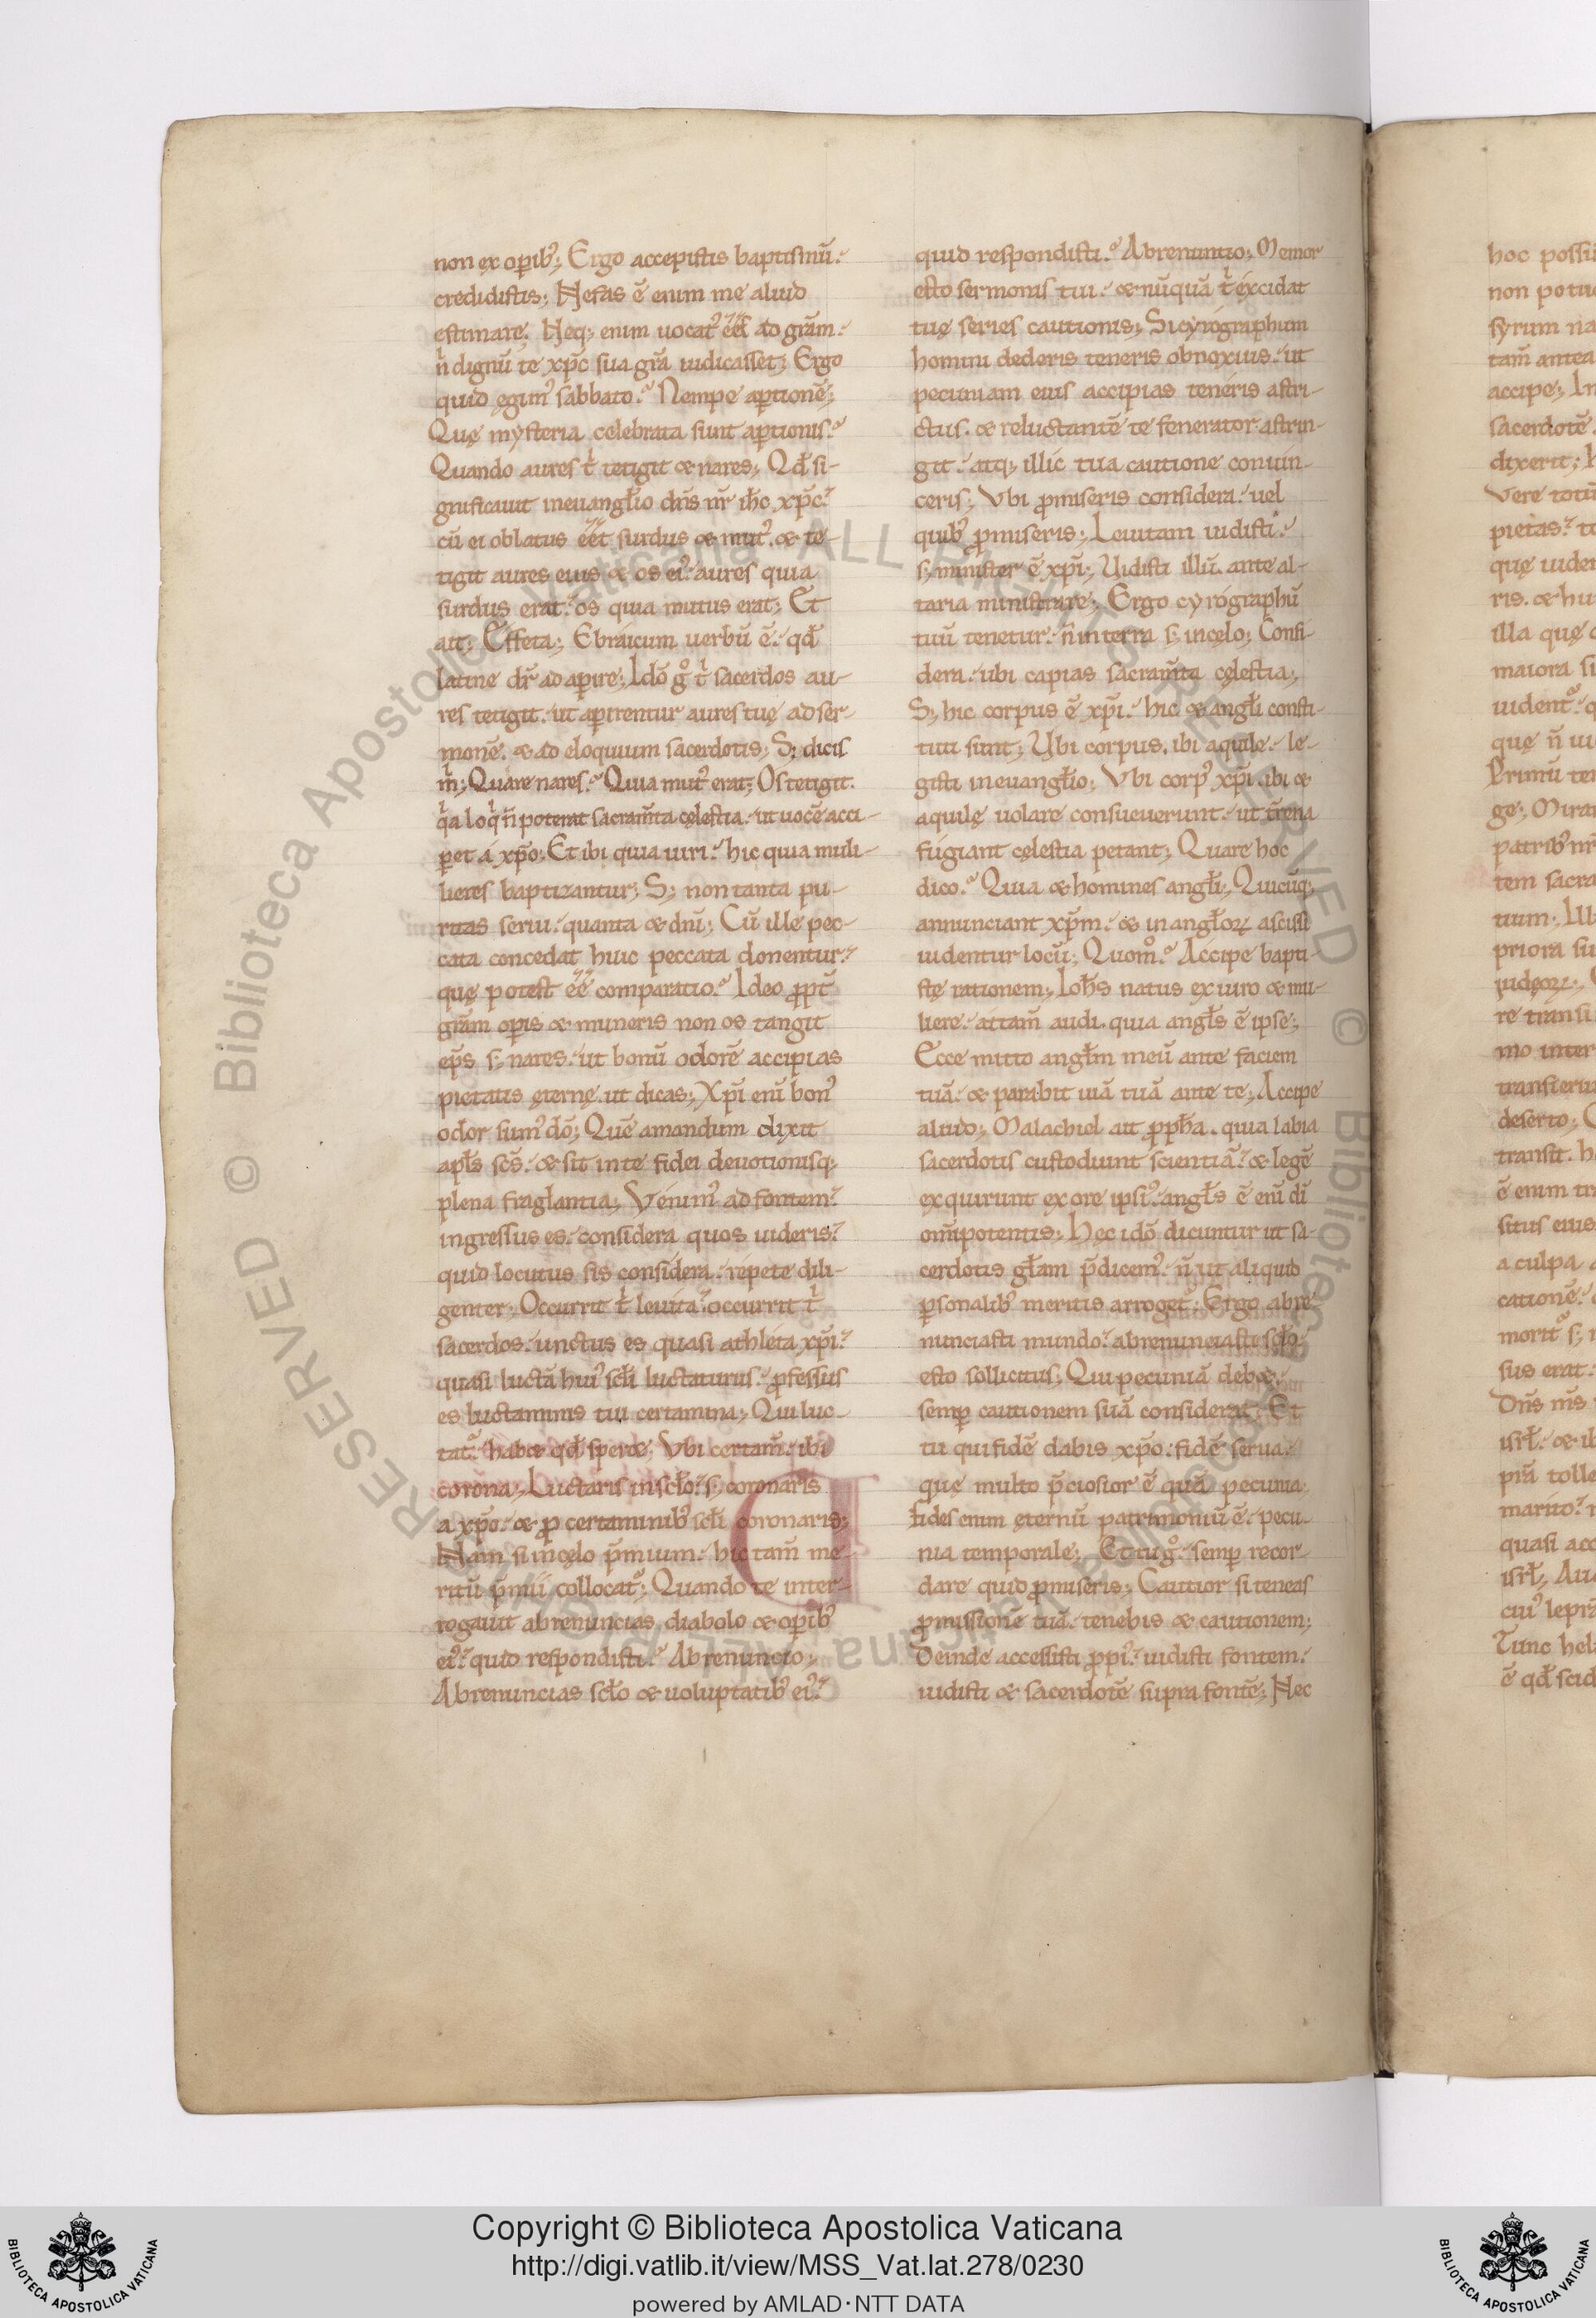 non ex opib᷒; Ergo accepistis baptismū.
credidistis; Nefas ē enim me aliud
estimare; Neq; enim uocat᷒ eēt ad grām.
n̄ dignū te xp̄c sua grā iudicasset; Ergo
quid ęgim᷒ sabbato? Nempe aptionē;
Quę mysteria celebrata sunt aptionis?
Quando aures t' tetigit & nares; Qd̄ si-
gnificauit ineuangl̄io dn̄s nr̄ ih̄c xp̄c.
cū ei oblatus eēt surdus & mut᷒. & te-
tigit aures eius & os ei᷒. aures quia
surdus erat. os quia mutus erat; Et
ait; Effeta; Ebraicum uerbū ē. qd̄
latine dr̄ adapire; Idō g° t' sacerdos au-
res tetigit. ut apirentur aures tuę adser-
monē. & ad eloquium sacerdotis; S; dicis
m'; Quare nares? Quia mut᷒ erat; Os tetigit.
q'a loq' n̄ poterat sacram̄ta cęlestia. ut uocē acci-
pet a xp̄o; Et ibi quia uiri. hic quia muli-
lieres baptizantur; S; non tanta pu-
ritas serui. quanta & dn̄i; Cū ille pec-
cata concedat huic peccata donentur.
quę potest eē comparatio? Ideo ppt̄
grām opis & muneris non os tangit
ep̄s s; nares. ut bonū odorē accipias
pietatis ęternę. ut dicas; Xp̄i enī bon᷒
odor sum᷒ dō; Quē amandum dixit
apl̄s sc̄s. & sit inte fidei deuotionisq;
plena fraglantia; Venim᷒ ad fontem.
ingressus es. considera quos uideris.
quid locutus sis considera. repete dili-
genter; Occurrit t' leuita. occurrit t'
sacerdos. unctus es quasi athleta xp̄i.
quasi luctā hui᷒ scl̄i luctaturus. pfessus
es luctaminis tui certamina; Qui luc-
tat᷒. hab& qd̄ sper&; Vbi certam̄. ibi
corona; Luctaris inscl̄o. s; coronaris
a xp̄o. & p certaminib᷒ scl̄i coronaris;
Nam si incęlo p̄mium. hic tam̄ me-
ritū p̄mii collocat᷒; Quando te inter-
rogauit abrenuncias diabolo & opib᷒
ei᷒. quid respondisti? Abrenuncio;
Abrenuncias scl̄o & uoluptatib᷒ ei᷒.
quid respondisti? Abrenuntio; Memor
esto sermonis tui. & nūquā t' excidat
tuę series cautionis; Si cyrographum
homini dederis teneris obnoxius. ut
pecuniam eius accipias teneris astri-
ctus. & reluctantē te fenerator astrin-
git. atq; illic tua cautione conuin-
ceris; Vbi pmiseris considera. uel
quib᷒ pmiseris; Leuitam uidisti.
s; minister ē xp̄i; Uidisti illū. ante al-
taria ministrare; Ergo cyrographū
tuū tenetur. n̄ interra s; incęlo; Consi-
dera. ubi capias sacram̄ta cęlestia;
S; hic corpus ē xp̄i. hic & angl̄i consti-
tuti sunt; Ubi corpus. ibi aquilę. le-
gisti ineuangl̄io; Vbi corp᷒ xp̄i. ibi &
aquilę uolare consueuerunt. ut tr̄rena
fugiant cęlestia petant; Quare hoc
dico? Quia & homines angl̄i; Quicūq;
annunciant xp̄m. & inangl̄oꝝ ascisli
uidentur locū; Quom°? Accipe bapti-
stę rationem; Ioh̄s natus ex uiro & mu-
liere. attam̄ audi. quia angl̄s ē ipse;
Ecce mitto angl̄m meū ante faciem
tuā. & parabit uiā tuā ante te; Accipe
aliud; Malachiel ait pph̄a. quia labia
sacerdotis custodiunt scientiā. & legē
exquirunt ex ore ipsi᷒. angl̄s ē enī dī
om̄ipotentis; Hęc idō dicuntur ut sa-
cerdotis gl̄am p̄dicem᷒. n̄ ut aliquid
psonalib᷒ meritis arroget᷒; Ergo abre
nunciasti mundo. abrenunciasti scl̄o.
esto sollicitus; Qui pecuniā deb&.
semp cautionem suā considerat; Et
tu qui fidē dabis xp̄o. fidē serua.
que multo p̄ciosior ē quā pecunia.
fides enim ęternū patrimoniū ē. pecu-
nia temporale; Et tu g°. semp recor-
dare quid pmiseris; Cautior si teneas
pmissionē tuā. tenebis & cautionem;
Deinde accessisti ppi᷒. uidisti fontem.
uidisti & sacerdotē supra fontē; Nec
hoc possu
non potu
syrum na
tam̄ antea
accipe; In
sacerdotē
dixerit;
Vere totū
pietas. te
quę uide
ris. & hu
illa quę
maiora s
uident᷒.
quę n̄ ui
Primū te
ge; Mira
patrib᷒ nr̄
tem sacra
tium; Ill
priora su
iudęoꝝ;
re transi
mo inter
transieru
deserto;
transit. h
ē enim tr
situs eius
a culpa
cationē.
morit᷒ s;
sus erat.
Dn̄s m̄s
isrl̄. & ib
priā tolle
marito.
quasi acc
isrl̄; Au
cui᷒ leprā
Tunc hel
ē qd̄ scid
Copyright © Biblioteca Apostolica Vaticana
http://digi.vatlib.it/view/MSS_Vat.lat.278/0230
powered by AMLAD·NTT DATA
BIBLIOTECA APOSTOLICA VATICANA
BIBLIOTECA APOSTOLICA VATICANA